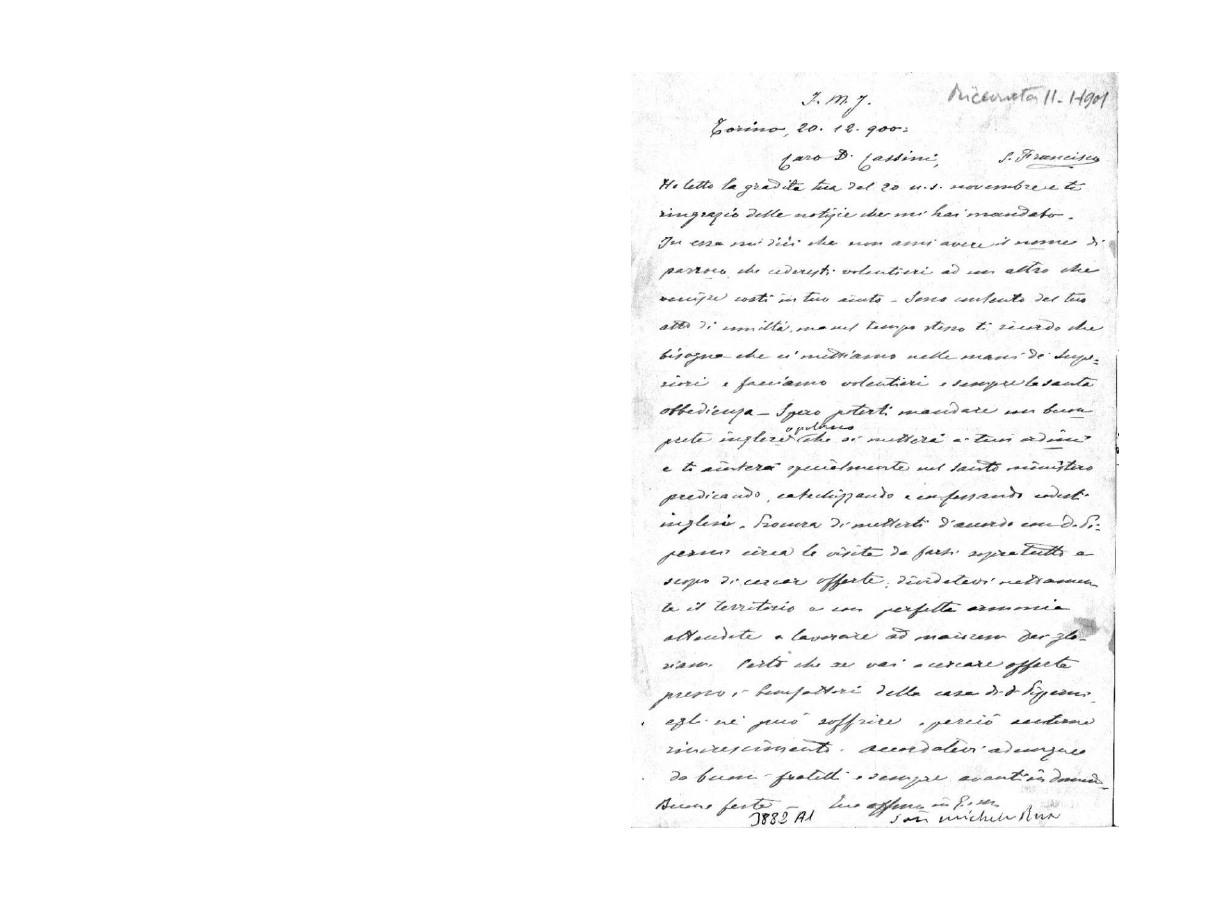 J. M. J.
Ricevuta 11-1-1901
Torino, 20. 12. 900.
Caro D. Cassini,
S. Francisco
Ho letto la gradita tua del 20 u.s. novembre e ti
ringrazio delle notizie che mi hai mandato.
In essa mi dici che non ami avere il nome di
parroco che cederesti volentieri ad un altro che
venisse costì in tuo aiuto – Sono contento del tuo
atto di umiltà, ma nel tempo stesso ti ricordo che
bisogna che ci mettiamo nelle mani dei Supe=
riori e facciamo volentieri e sempre la santa
obbedienza – Spero poterti mandare un buon
prete inglese che si metterà a' tuoi ordini
e ti aiuterà specialmente nel santo ministero
predicando, catechizzando e confessando codesti
inglesi. Procura di metterti d'accordo con D. Pi=
perni circa le visite da farsi sopratutto a
scopo di cercar offerte; dividetevi nettamen
te il territorio e con perfetta armonia
attendete a lavorare ad maiorem Dei glo-
riam. Certo che se vai a cercare offerte
presso i benefattori della casa di D. Piperni,
egli ne può soffrire e perciò sentirne
rincrescimento. Accordatevi adunque
da buoni fratelli e sempre avanti in Domino.
Buone feste – Tuo affmo in G. e M.
Sac. Michele Rua
3882 A1